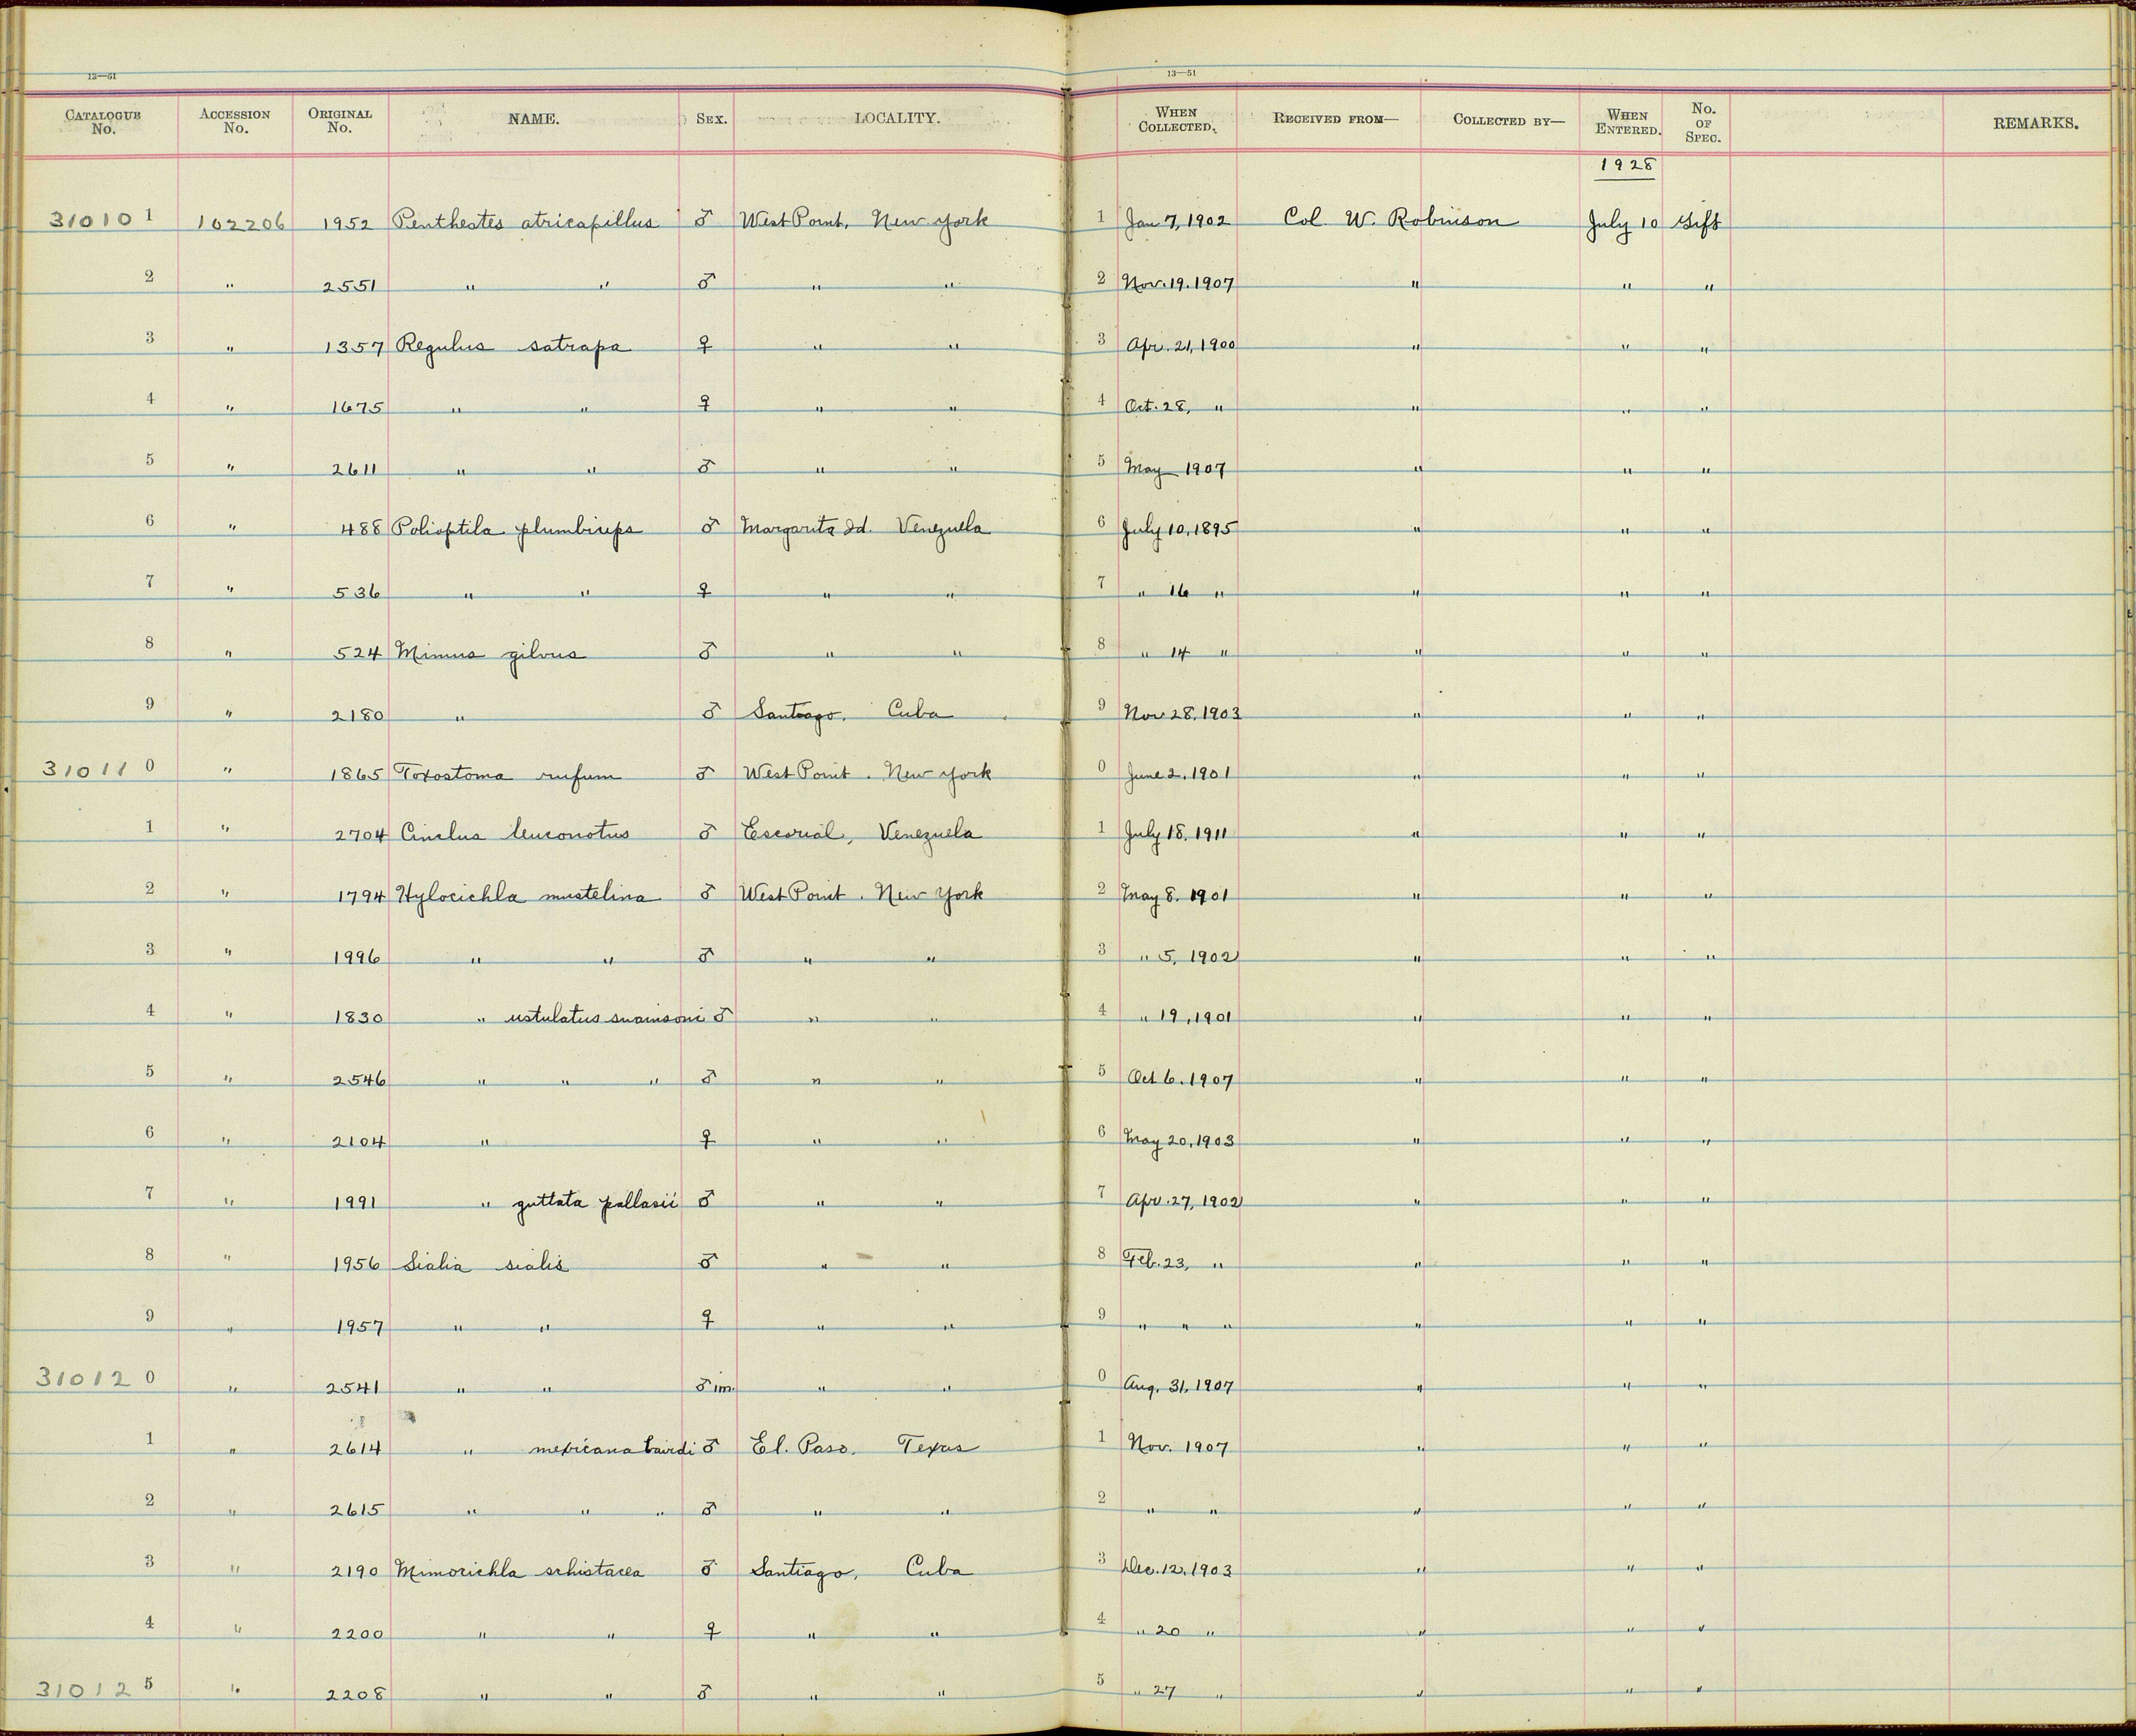 13—51 13—51
CATALOGUE No. ACCESSION No. ORIGINAL No. NAME. SEX. LOCALITY. WHEN COLLECTED. RECEIVED FROM— COLLECTED BY— WHEN ENTERED. No. OF SPEC. REMARKS.
1928
310101 102206 1952 Penthestes atricapillus ♂ West Point, New York 1 Jan 7, 1902 Col. W. Robinson July 10 Gift
2 " 2551 " " ♂ " " 2 Nov. 19. 1907 " " "
3 " 1357 Regulus satrapa ♀ " " 3 Apr. 21, 1900 " " "
4 " 1675 " " ♀ " " 4 Oct. 28, " " " "
5 " 2611 " " ♂ " " 5 May 1907 " " "
6 " 488 Polioptila plumbiceps ♂ Margarita Id. Venezuela 6 July 10, 1895 " " "
7 " 536 " " ♀ " " 7 " 16 " " " "
8 " 524 Mimus gilvus ♂ " " 8 " 14 " " " "
9 " 2180 " ♂ Santiago, Cuba 9 Nov 28. 1903 " " "
310110 " 1865 Toxostoma rufum ♂ West Point. New York 0 June 2. 1901 " " "
1 " 2704 Cinclus leuconotus ♂ Escorial, Venezuela 1 July 18. 1911 " " "
2 " 1794 Hylocichla mustelina ♂ West Point. New York 2 May 8. 1901 " " "
3 " 1996 " " ♂ " " 3 " 5, 1902 " " "
4 " 1830 " ustulatus swainsoni ♂ " " 4 " 19, 1901 " " "
5 " 2546 " " " ♂ " " 5 Oct 6. 1907 " " "
6 " 2104 " ♀ " " 6 May 20, 1903 " " "
7 " 1991 " guttata pallasii ♂ " " 7 Apr. 27, 1902 " " "
8 " 1956 Sialia sialis ♂ " " 8 Feb. 23, " " " "
9 " 1957 " " ♀ " " 9 " " " " " "
310120 " 2541 " " ♂ im. " " 0 Aug. 31, 1907 " " "
1 " 2614 " mexicana bairdi ♂ El. Paso. Texas 1 Nov. 1907 " " "
2 " 2615 " " " ♂ " " 2 " " " " "
3 " 2190 Mimocichla schistacea ♂ Santiago, Cuba 3 Dec. 12. 1903 " " "
4 " 2200 " " ♀ " " 4 " 20 " " " "
310125 " 2208 " " ♂ " " 5 " 27 " " " "